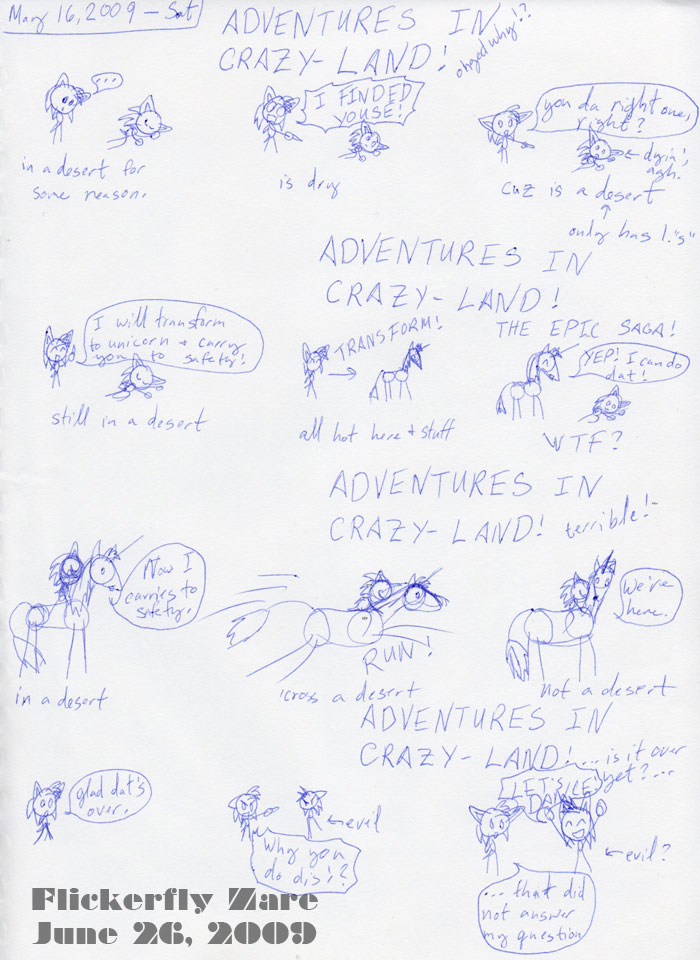 May 16, 2009 - Sat
ADVENTURES IN
CRAZY-LAND!
why!?
...
I FINDED
YOUSE!
you da right one,
right?
dyin',
agh.
in a desert for
some reason.
is dry
cuz is a desert
only has 1 "s"
ADVENTURES IN
CRAZY-LAND!
THE EPIC SAGA!
I will transform
to unicorn + carry
you to safety!
TRANSFORM!
YEP! I can do
dat!
still in a desert
all hot here + stuff
WTF?
ADVENTURES IN
CRAZY-LAND! terrible!
Now I
carries to
safety.
RUN!
We're
here.
in a desert
'cross a desert
not a desert
ADVENTURES IN
CRAZY-LAND!...is it over
yet?...
glad dat's
over.
evil
Why you
do dis!?
LET'S
evil?
... that did
not answer
my question
Flickerfly Zare
June 26, 2009